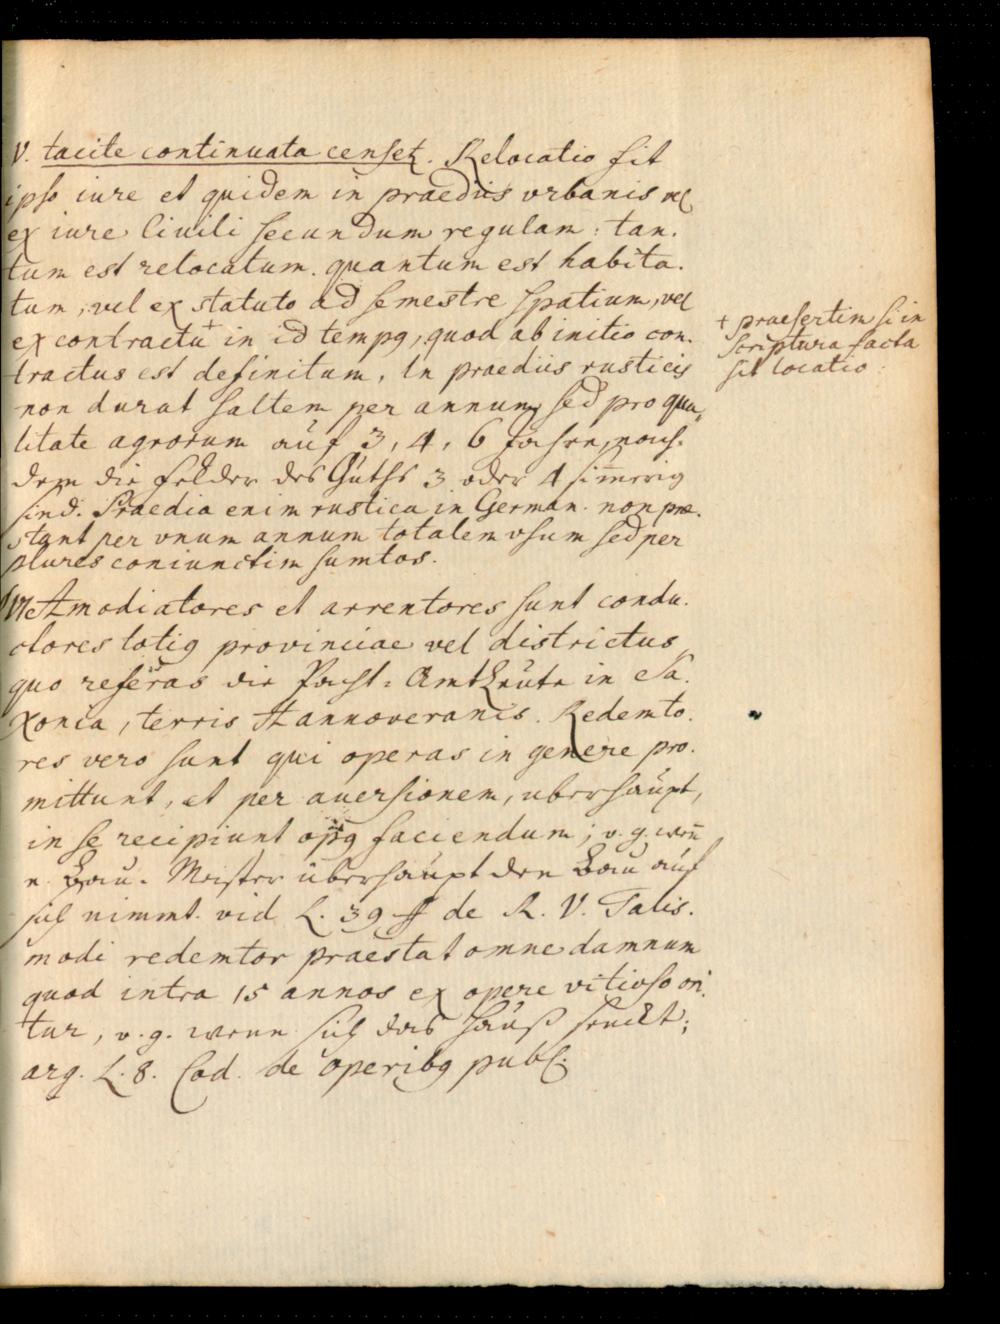 V. tacite continuata censetr. Relocatio fit
ipso iure et quidem in praediis vrbanis vel
ex iure Ciuili secundum regulam: tan-
tum est relocatum, quantum est habita-
tum, vel ex statuto ad semestre spatium, vel
ex contractu + in id tempq, quod ab initio con-
tractus est definitum. In praediis rusticis
non durat saltem per annum, sed pro qua-
litate agrorum auf 3, 4, 6 Jahre, nach-
dem die Felder des Guths 3 oder 4
sind. Praedia enim rustica in German. non prae-
stant per vnum annum totalem vsum sed per
plures coniunctim sumtos.
+ praesertim si in
scriptura facta
sit locatio.
VI Admodiatores et arrentores sunt condu-
ctores totiq provinciae vel districtus,
quo referas die Pacht-Amtleute in Sa-
xonia, terris Hannoveranis. Redemto-
res vero sunt qui operas in genere pro-
mittunt, et per auersionem, uberhaupt,
in se recipiunt opq faciendum; v. g. wen̄
e. Bau-Meister überhaupt den Bau auf
sich nimmt. vid. L. 39 ff de R. V. Talis-
modi redemtor praestat omne damnum
quod intra 15 annos ex opere vitioso ori-
tur, v. g. wenn sich das Hauß senckt;
arg. L. 8. Cod. de operibq publ.